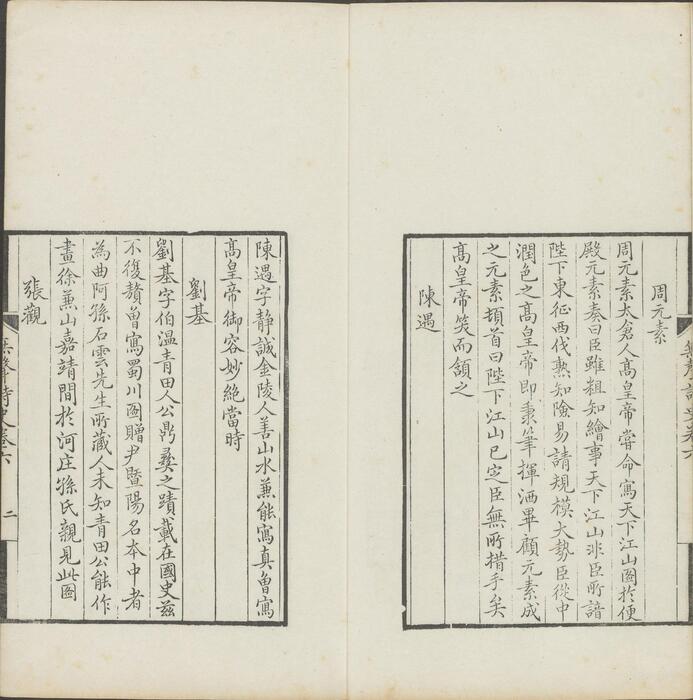 周元素
周元素太倉人高皇帝嘗命寫天下江山圖於便
殿元素奏曰臣雖粗知繪事天下江山非臣所諳
陛下東征西伐熟知險易請規模大勢臣從中
潤色之高皇帝即秉筆揮洒畢顧元素成
之元素頓首曰陛下江山已定臣無所措手矣
高皇帝笑而頷之
陳遇
陳遇字靜誠金陵人善山水兼能寫真曾寫
高皇帝御容妙絕當時
劉基
劉基字伯溫青田人公鼎彝之蹟載在國史茲
不復贅曾寫蜀川圖贈尹暨陽名本中者
為曲阿孫石雲先生所藏人未知青田公能作
畫徐蒹山嘉靖間於河庄孫氏親見此圖
張觀
無聲詩史卷六
二